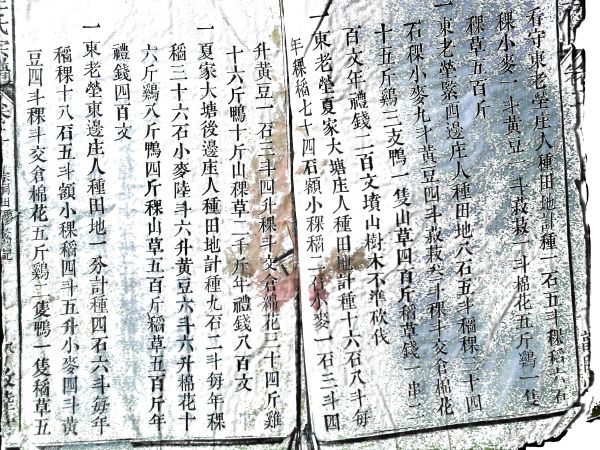 看守東老塋庄人種田地計種一石五斗稞稻六石
稞小麥一斗黃豆一斗菽菽一斗棉花五斤鷄一隻
稞草五百斤
一東老塋緊西邊庄人種田地八石五斗稻稞二十四
石稞小麥九斗黃豆四斗菽菽叁斗稞斗交倉棉花
十五斤鷄三支鴨一隻山草四百斤稻草錢一串二
百文年禮錢二百文墳山樹木不準砍伐
一東老塋夏家大塘庄人種田地計種十六石八斗每
年稞稻七十四石額小稞稻二石小麥一石三斗四
升黃豆一石三斗四升稞斗交倉綿花三十四斤雞
十六斤鴨十斤山稞草二千斤年禮錢八百文
一夏家大塘後邊庄人種田地計種九石二斗每年稞
稻三十六石小麥陸斗六升黃豆六斗六升棉花十
六斤鷄八斤鴨四斤稞山草五百斤稻草五百斤年
禮錢四百文
一東老塋東邊庄人種田地一分計種四石六斗每年
稻稞十八石五斗額小稞稻四斗五升小麥四斗黃
豆四斗稞斗交倉棉花五斤鷄二隻鴨一隻稻草五
氏宗譜